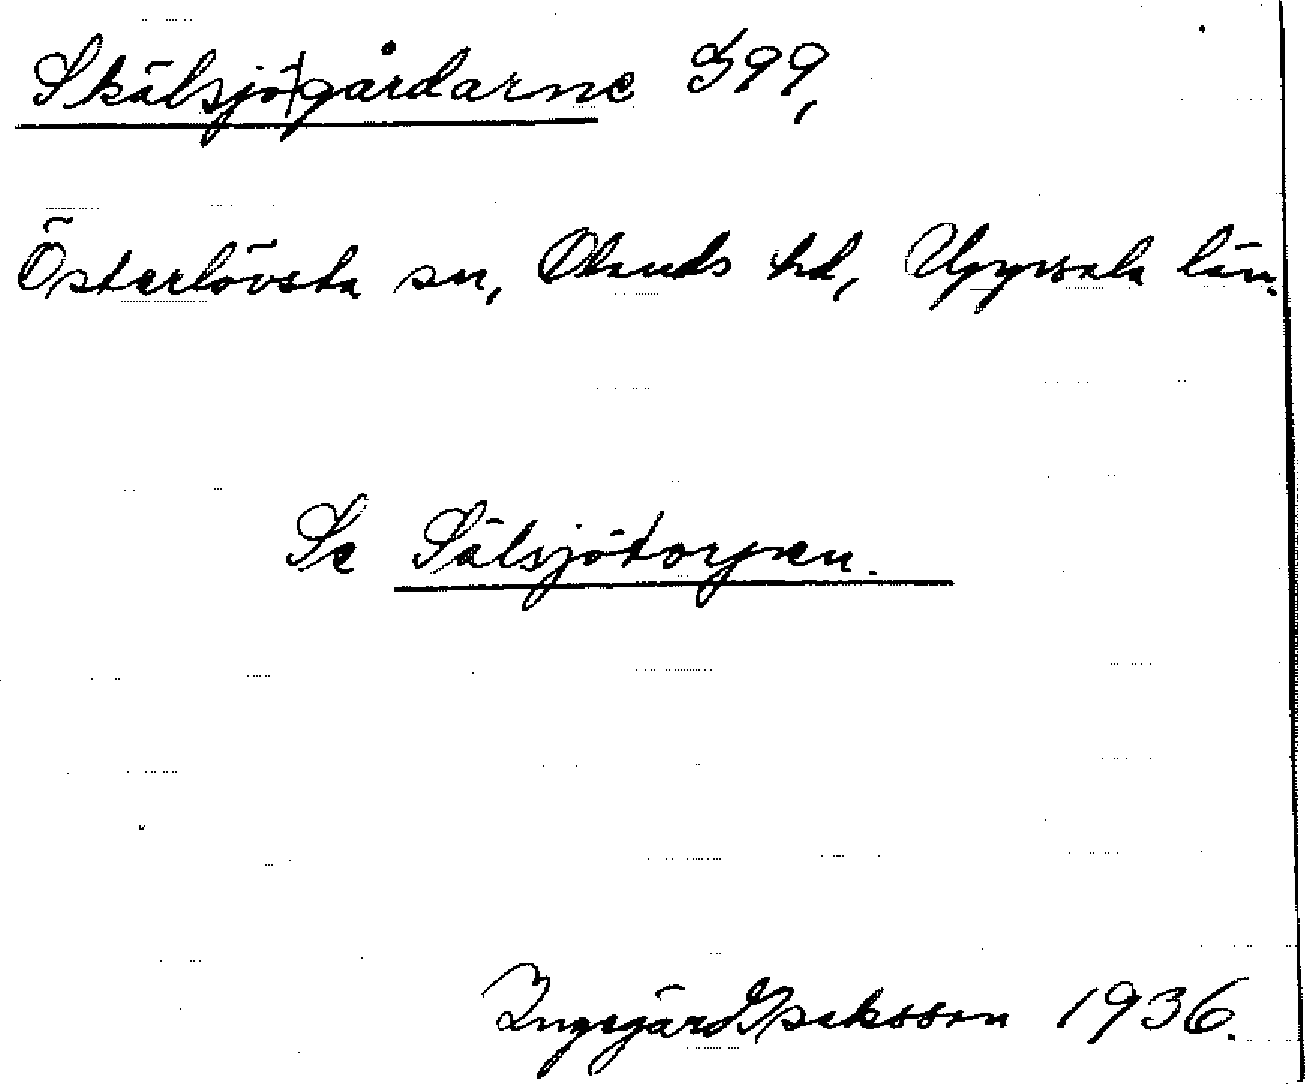 Skälsjö|gårdarne I99,
Österlövsta sn, Olands hd, Uppsala län.
Se Sälsjötorpen.
Ingegärd Isaksson 1936.